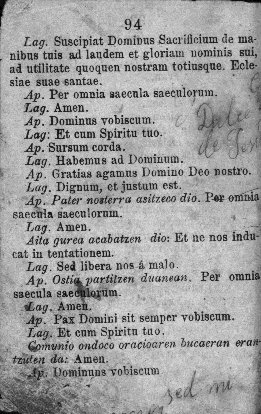 94
Lag. Suscipiat Dominus Sacrificium de ma-
nibus tuis ad laudem et gloriam nominis sui,
ad utilitate quoquen nostram totiusque. Ecle-
siae suae santae.
Ap. Per omnia saecula saeculorum.
Lag. Amen.
Ap. Dominus vobiscum.
Lag: Et cum Spiritu tuo.
Ap. Sursum corda.
Lag. Habemus ad Dominum.
Ap. Gratias agamus Domino Deo nostro.
Lag. Dignum, et justum est.
Ap. Pater nosterra asitzeco dio. Per omnia
saecula saeculorum.
Lag. Amen.
Aita gurea acabatzen dio: Et ne nos indu-
cat in tentationem.
Lag. Sed libera nos á malo.
Ap. Ostia partitzen duanean. Per omnia
saecula saeculorum.
Lag. Amen.
Ap. Pax Domini sit semper vobiscum.
Lag. Et cum Spiritu tuo.
Comunio ondoco oracioaren bucaeran eran-
tzuten da: Amen.
Ap. Dominus vobiscum